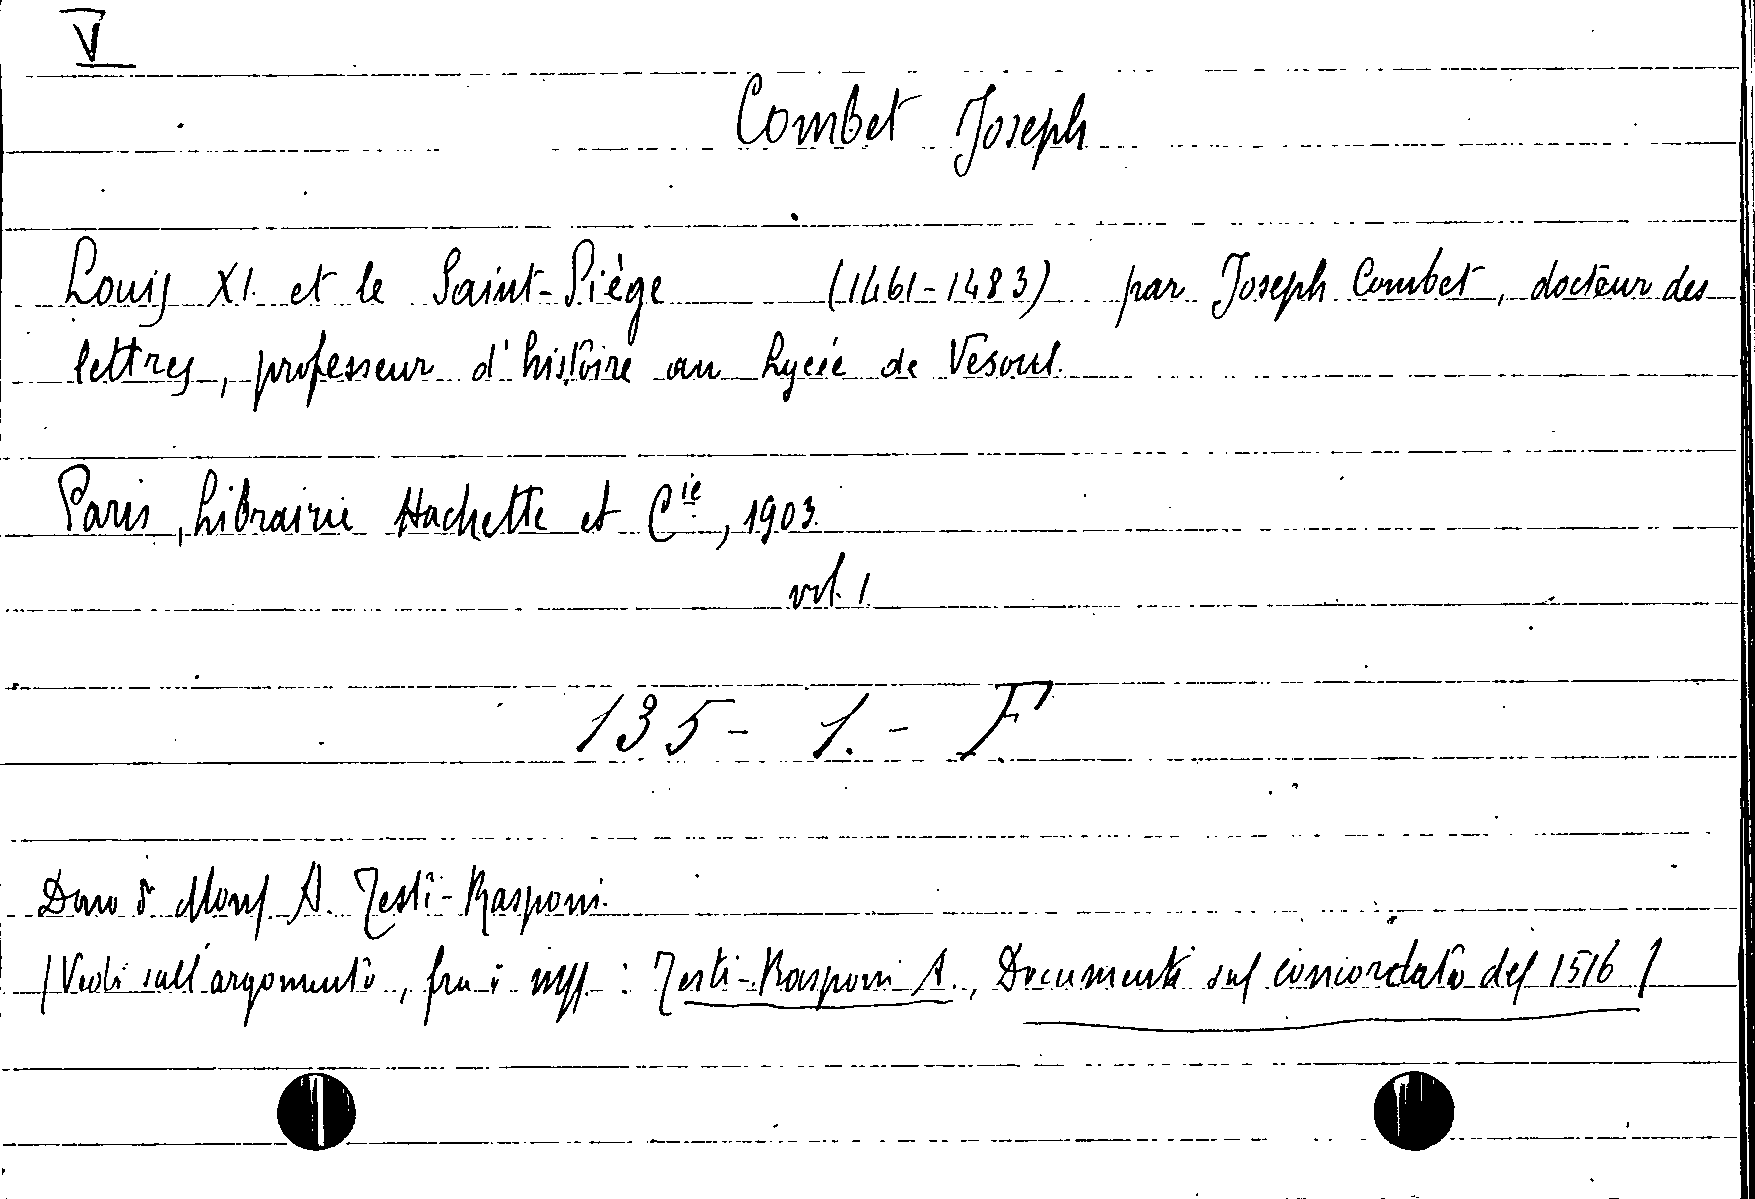 V
Combet Joseph
Louis XI. et le Saint-Siège (1461-1483) par Joseph Combet, docteur des
lettres, professeur d'histoire au Lycée de Vesoul.
Paris, Librairie Hachette et Cie, 1903.
vol. 1
135 - 1. - F
Dono di Mons. A. Testi-Rasponi.
(Vedi sull'argomento, fra i mss. : Testi-Rasponi A., Documenti sul concordato del 1516)